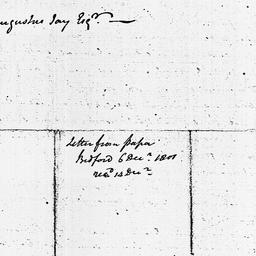 ugustus Jay Esqr.
Letter from papa
Bedford 6 Decr. 1801
recd. 14 Decr.